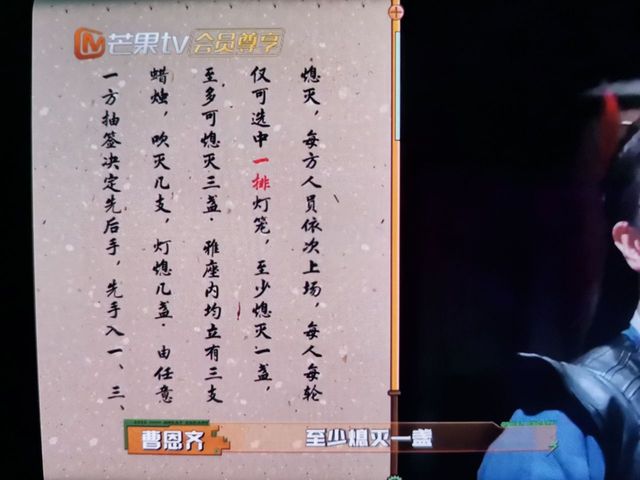 芒果tv 会员尊享
熄灭，每方人员依次上场，每人每轮
仅可选中一排灯笼，至少熄灭一盏，
至多可熄灭三盏．雅座内均立有三支
蜡烛，吹灭几支，灯熄几盏．由任意
一方抽签决定先后手，先手入一、三、
曹恩齐
至少熄灭一盏